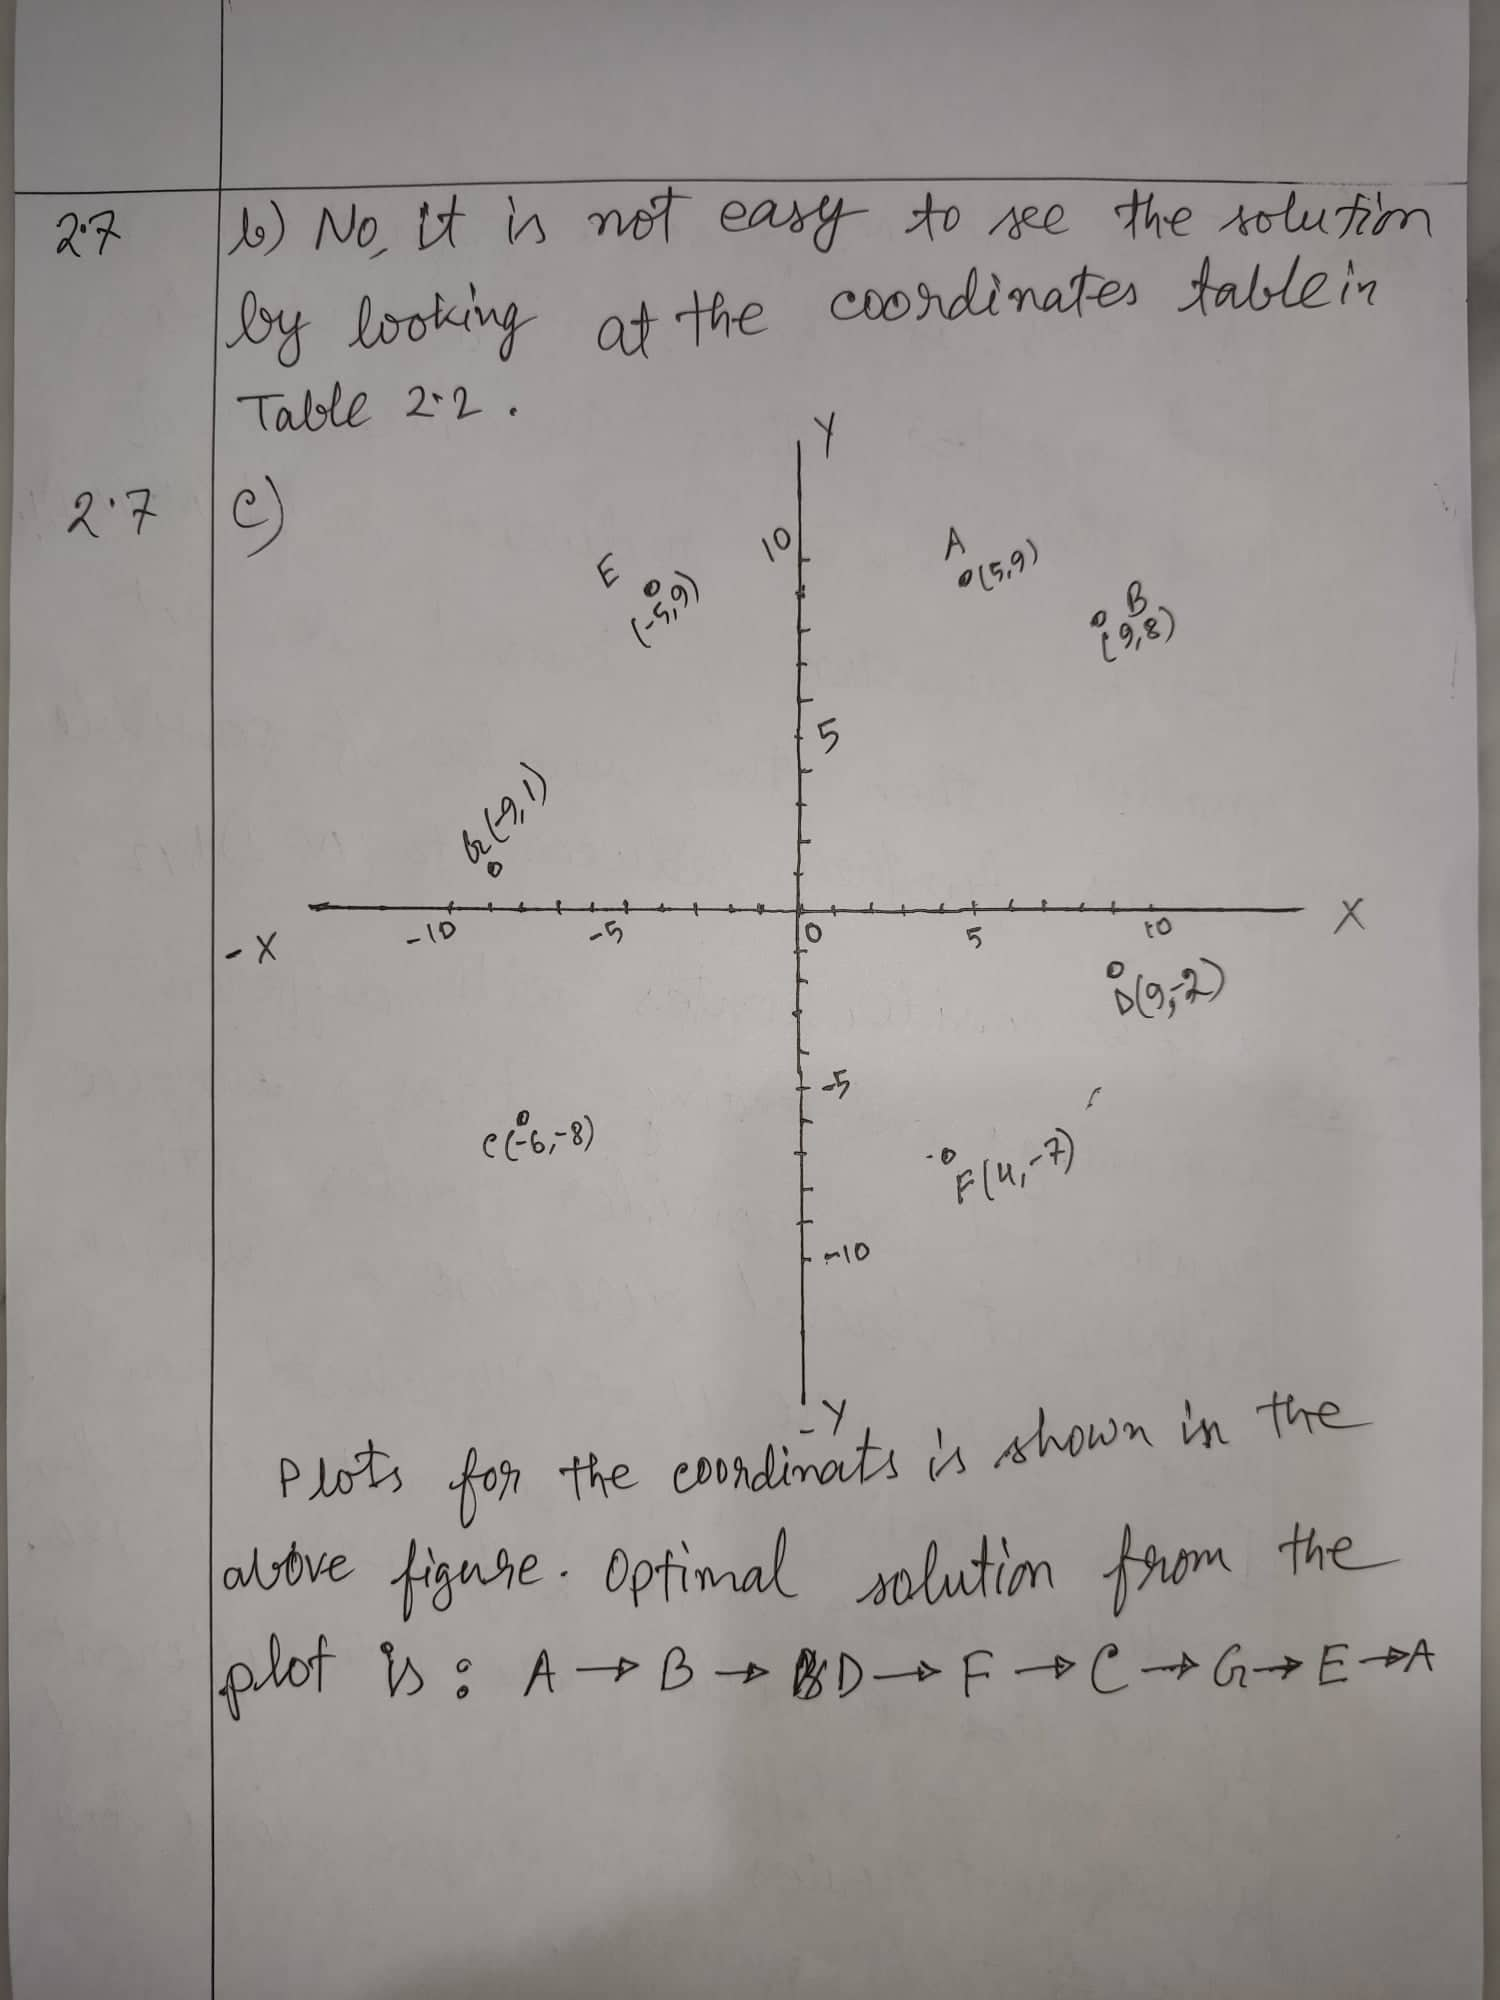 2.7 b) No, It is not easy to see the solution
by looking at the coordinates table in
Table 2.2.
2.7 c)
Y
10
E
(-5,9)
A
(5,9)
B
(9,8)
5
G(-9,1)
-X
-10
-5
0
5
10
X
D(9,-2)
-5
C(-6,-8)
F(4,-7)
-10
-Y
Plots for the coordinats is shown in the
above figure. Optimal solution from the
plot is : A → B → D → F → C → G → E → A